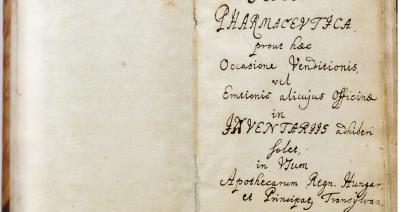 PHARMACEVTICA,
prout hæc
Occasione Venditionis,
vel
Emtionis alicujus Officinæ
in
INVENTARIIS adhiberi
solet,
in Vsum
Apothecarum Regn. Hungar.
et Principat, Transylvan,